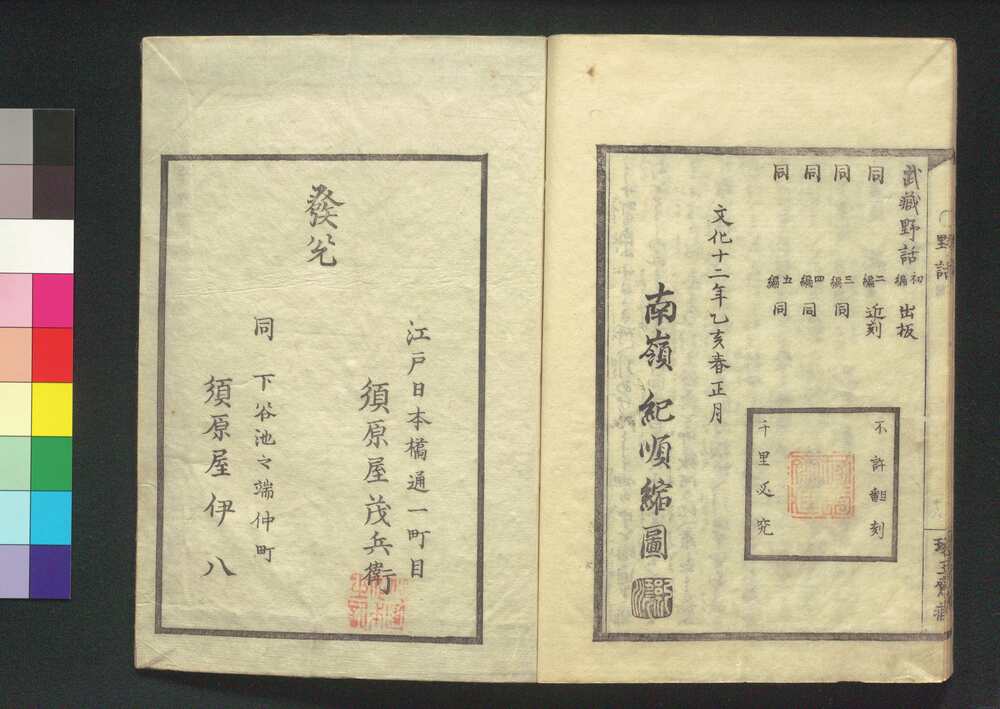 武蔵野話 初編 出板
同 二編 近刻
同 三編 同
同 四編 同
同 五編 同
不許翻刻
千里必究
文化十二年乙亥春正月
南嶺紀順縮圖
發兌
江戸日本橋通一町目
須原屋茂兵衛
同 下谷池之端仲町
須原屋伊八